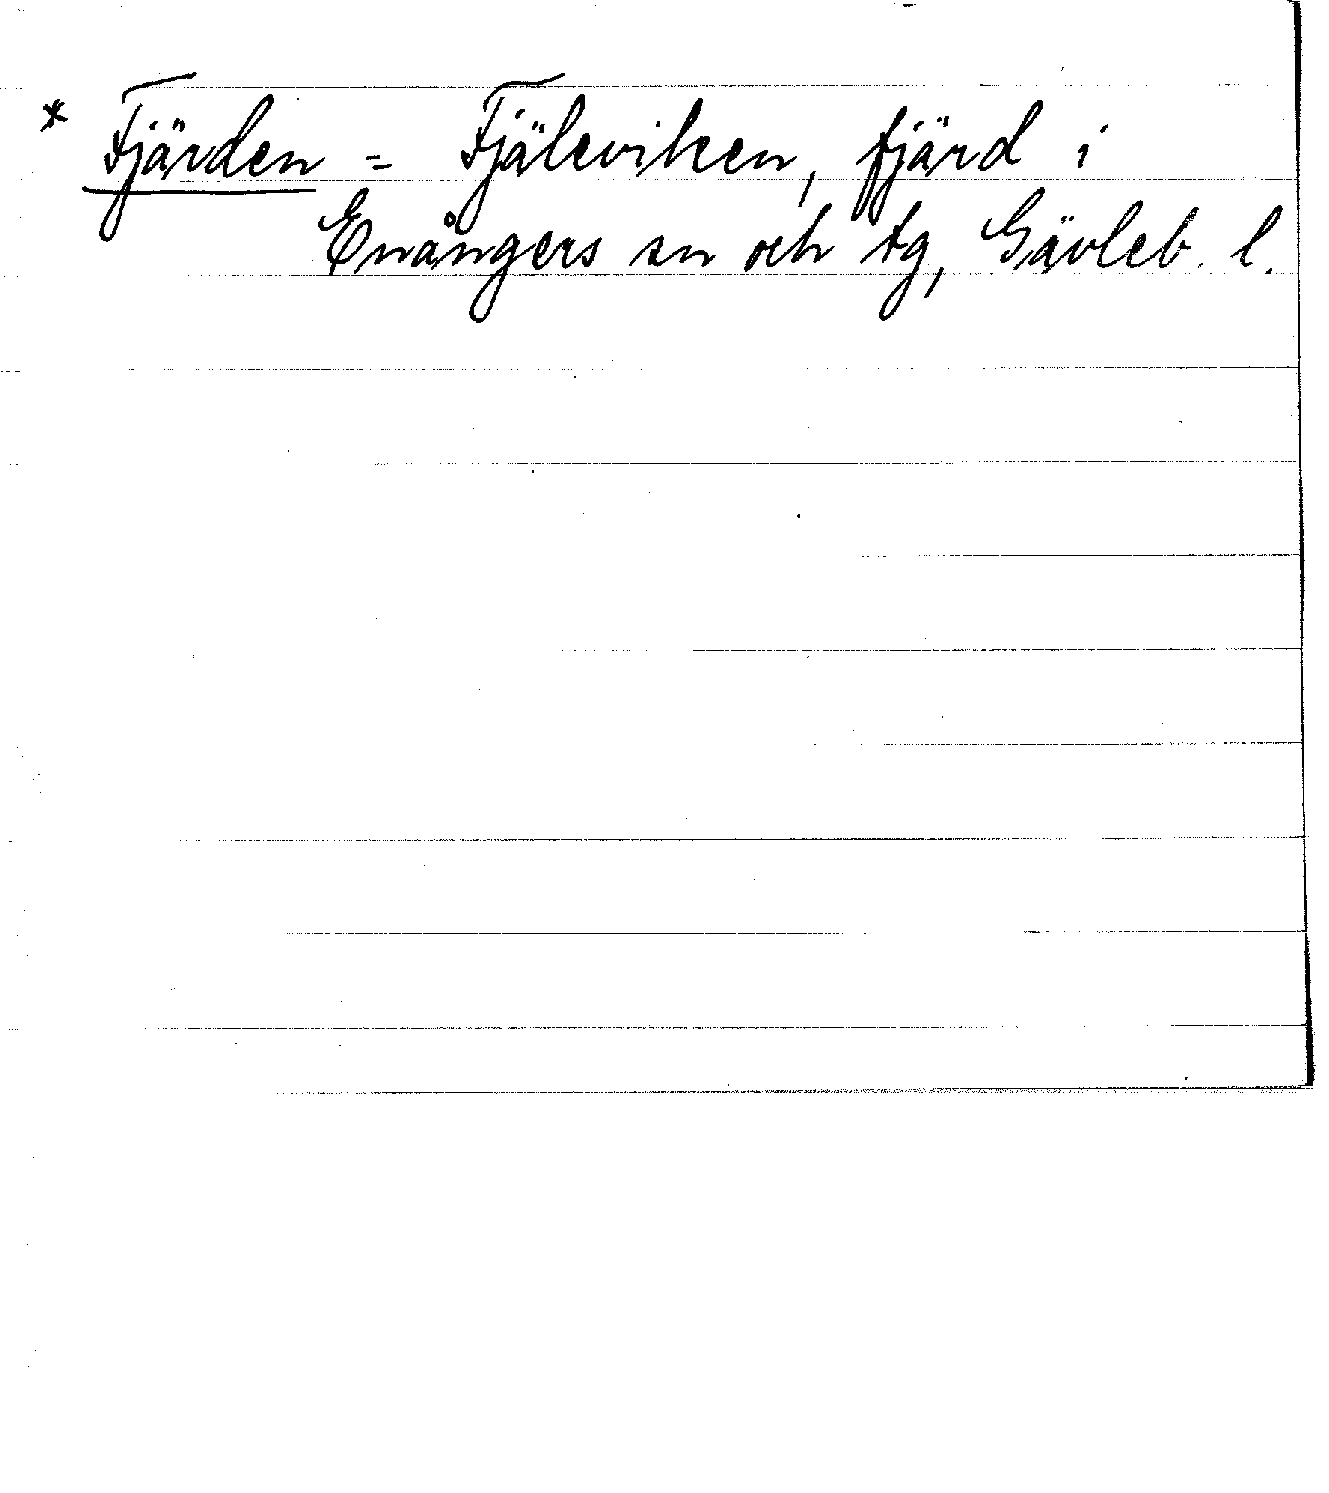 * Fjärden = Fjäleviken, fjärd i
Enångers sn och tg, Gävleb. l.